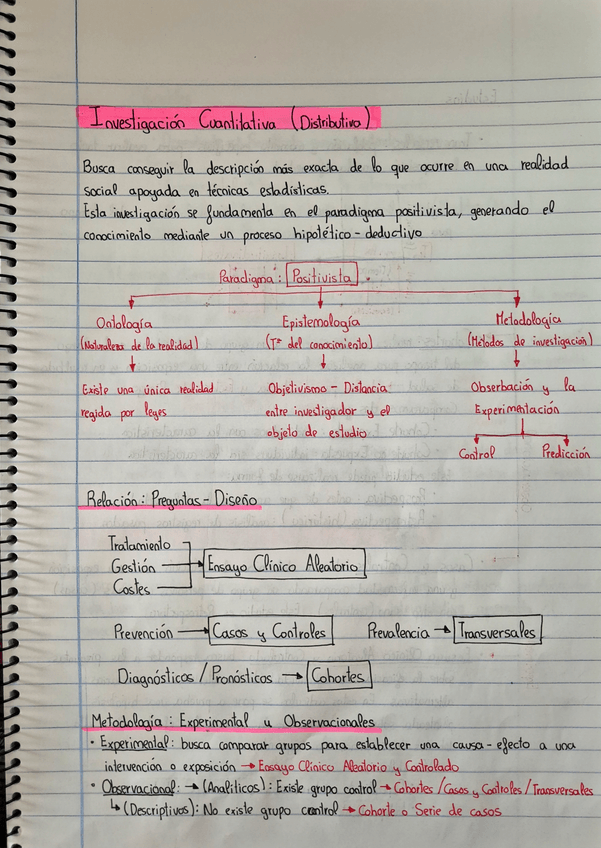 Investigación Cuantitativa (Distributiva)
Busca conseguir la descripción más exacta de lo que ocurre en una realidad
social apoyada en técnicas estadísticas.
Esta investigación se fundamenta en el paradigma positivista, generando el
conocimiento mediante un proceso hipotético-deductivo
Paradigma: Positivista.
Ontología Epistemología Metodologia
(Naturaleza de la realidad) (Tª del conocimiento) (Métodos de investigación)
Existe una única realidad Objetivismo - Distancia Obserbación y la
regida por leyes entre investigador y el Experimentación
objeto de estudio
Control Predicción
Relación: Preguntas - Diseño
Tratamiento
Gestión → Ensayo Clínico Aleatorio
Costes
Prevención → Casos y Controles Prevalencia → Transversales
Diagnósticos / Pronósticos → Cohortes
Metodología: Experimental u Observacionales
• Experimental: busca comparar grupos para establecer una causa-efecto a una
intervención o exposición → Ensayo Clínico Aleatorio y Controlado
• Observacional: → (Analíticos): Existe grupo control → Cohortes / Casos y Controles / Transversales
↳ (Descriptivos): No existe grupo control → Cohorte o Serie de casos